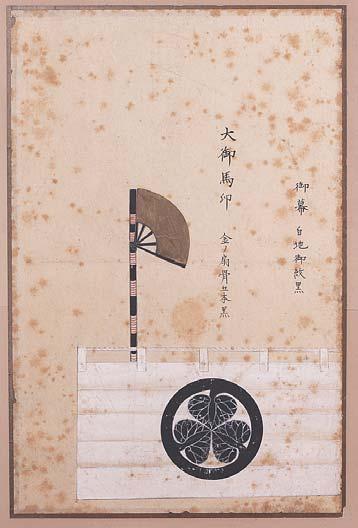 御幕 白地御紋黒
大御馬印 金ノ扇骨 黒